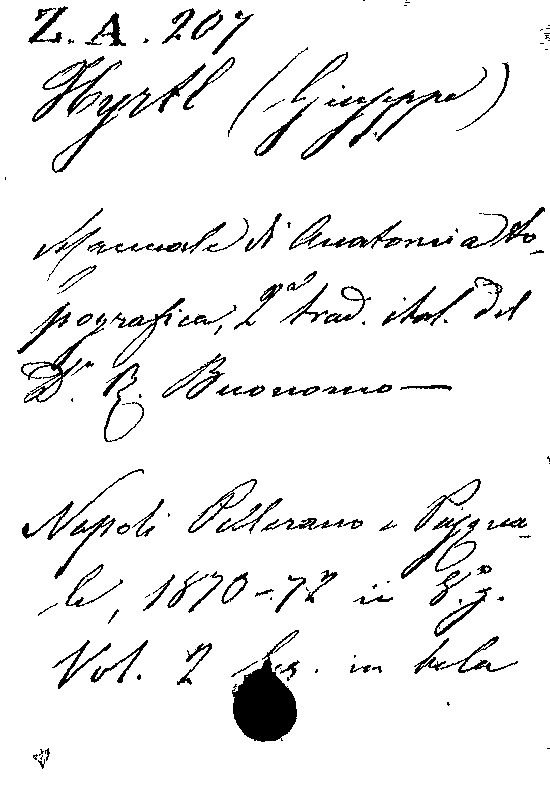 Z. A. 207
Hyrtl (Giuseppe)
Manuale di Anatomia to-
pografica, 2ª trad. ital. del
Dr. B. Buonomo —
Napoli Pellerano e Pasqua-
le, 1870-72 in 8.º g.
Vol. 2 leg. in tela